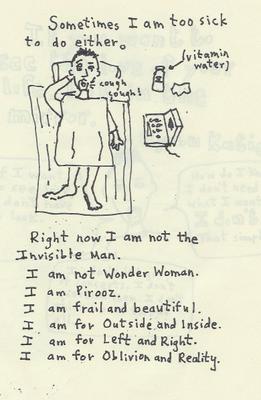 Sometimes I am too sick
to do either.
(vitamin
water)
cough
cough!
Right now I am not the
Invisible Man.
I am not Wonder Woman.
I am Pirooz.
I am frail and beautiful.
I am for Outside and Inside.
I am for Left and Right.
I am for Oblivion and Reality.